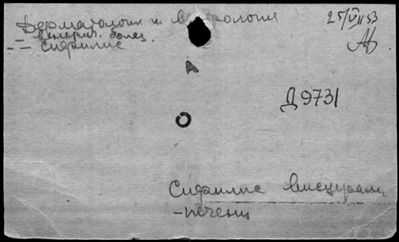 Дерматология и венерология
25/VII 53
-- венерич. болез.
-- сифилис.
Д9731
Сифилис висцеральн
-печени